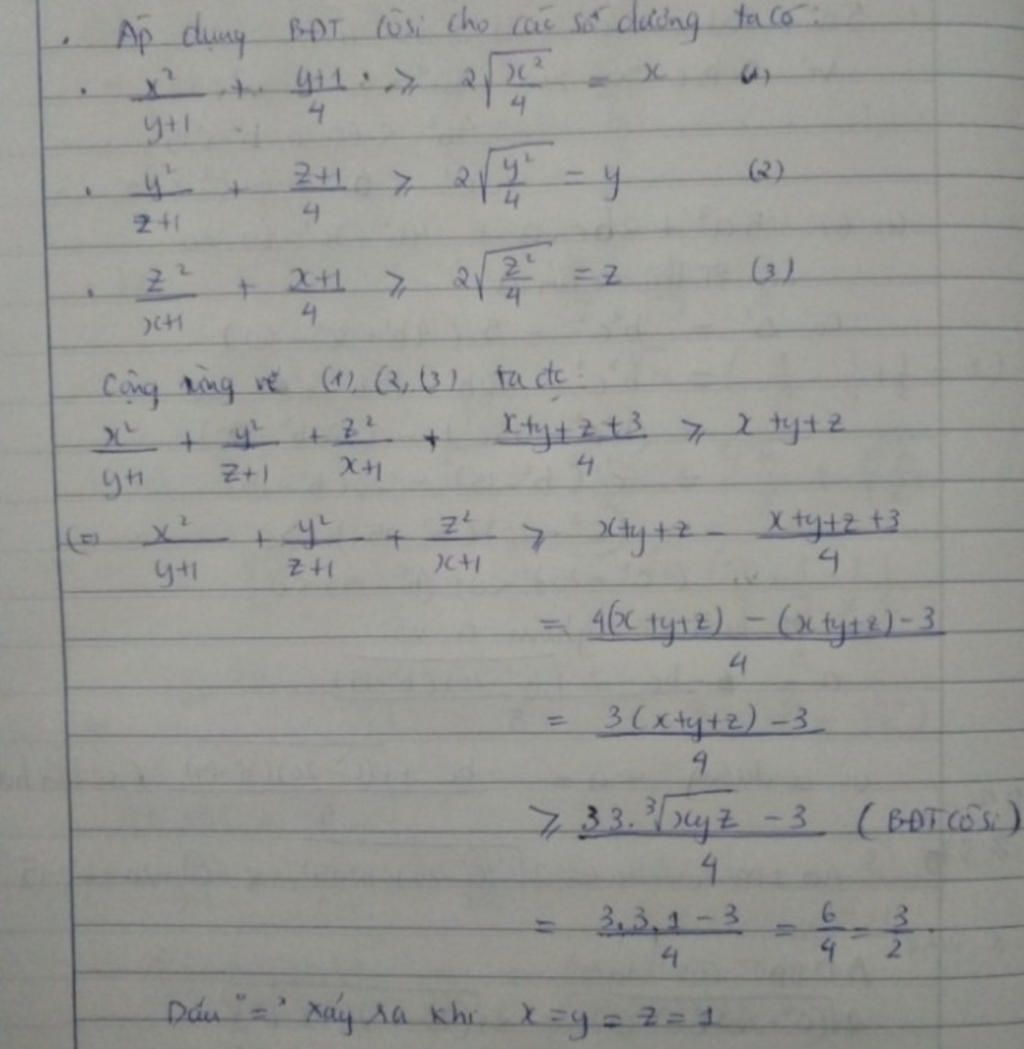 . Áp dụng BĐT Côsi cho các số dương ta có:
. x²/(y+1) + (y+1)/4 ≥ 2√(x²/4) = x (1)
. y²/(z+1) + (z+1)/4 ≥ 2√(y²/4) = y (2)
. z²/(x+1) + (x+1)/4 ≥ 2√(z²/4) = z (3)
Cộng từng vế (1), (2, (3) ta đc:
x²/(y+1) + y²/(z+1) + z²/(x+1) + (x+y+z+3)/4 ≥ x+y+z
(=) x²/(y+1) + y²/(z+1) + z²/(x+1) ≥ x+y+z - (x+y+z+3)/4
= (4(x+y+z) - (x+y+z) - 3)/4
= (3(x+y+z) - 3)/4
≥ (33.³√(xyz) - 3)/4 (BĐT Côsi)
= (3.3.1 - 3)/4 = 6/4 = 3/2.
Dấu "=" xảy ra khi x = y = z = 1